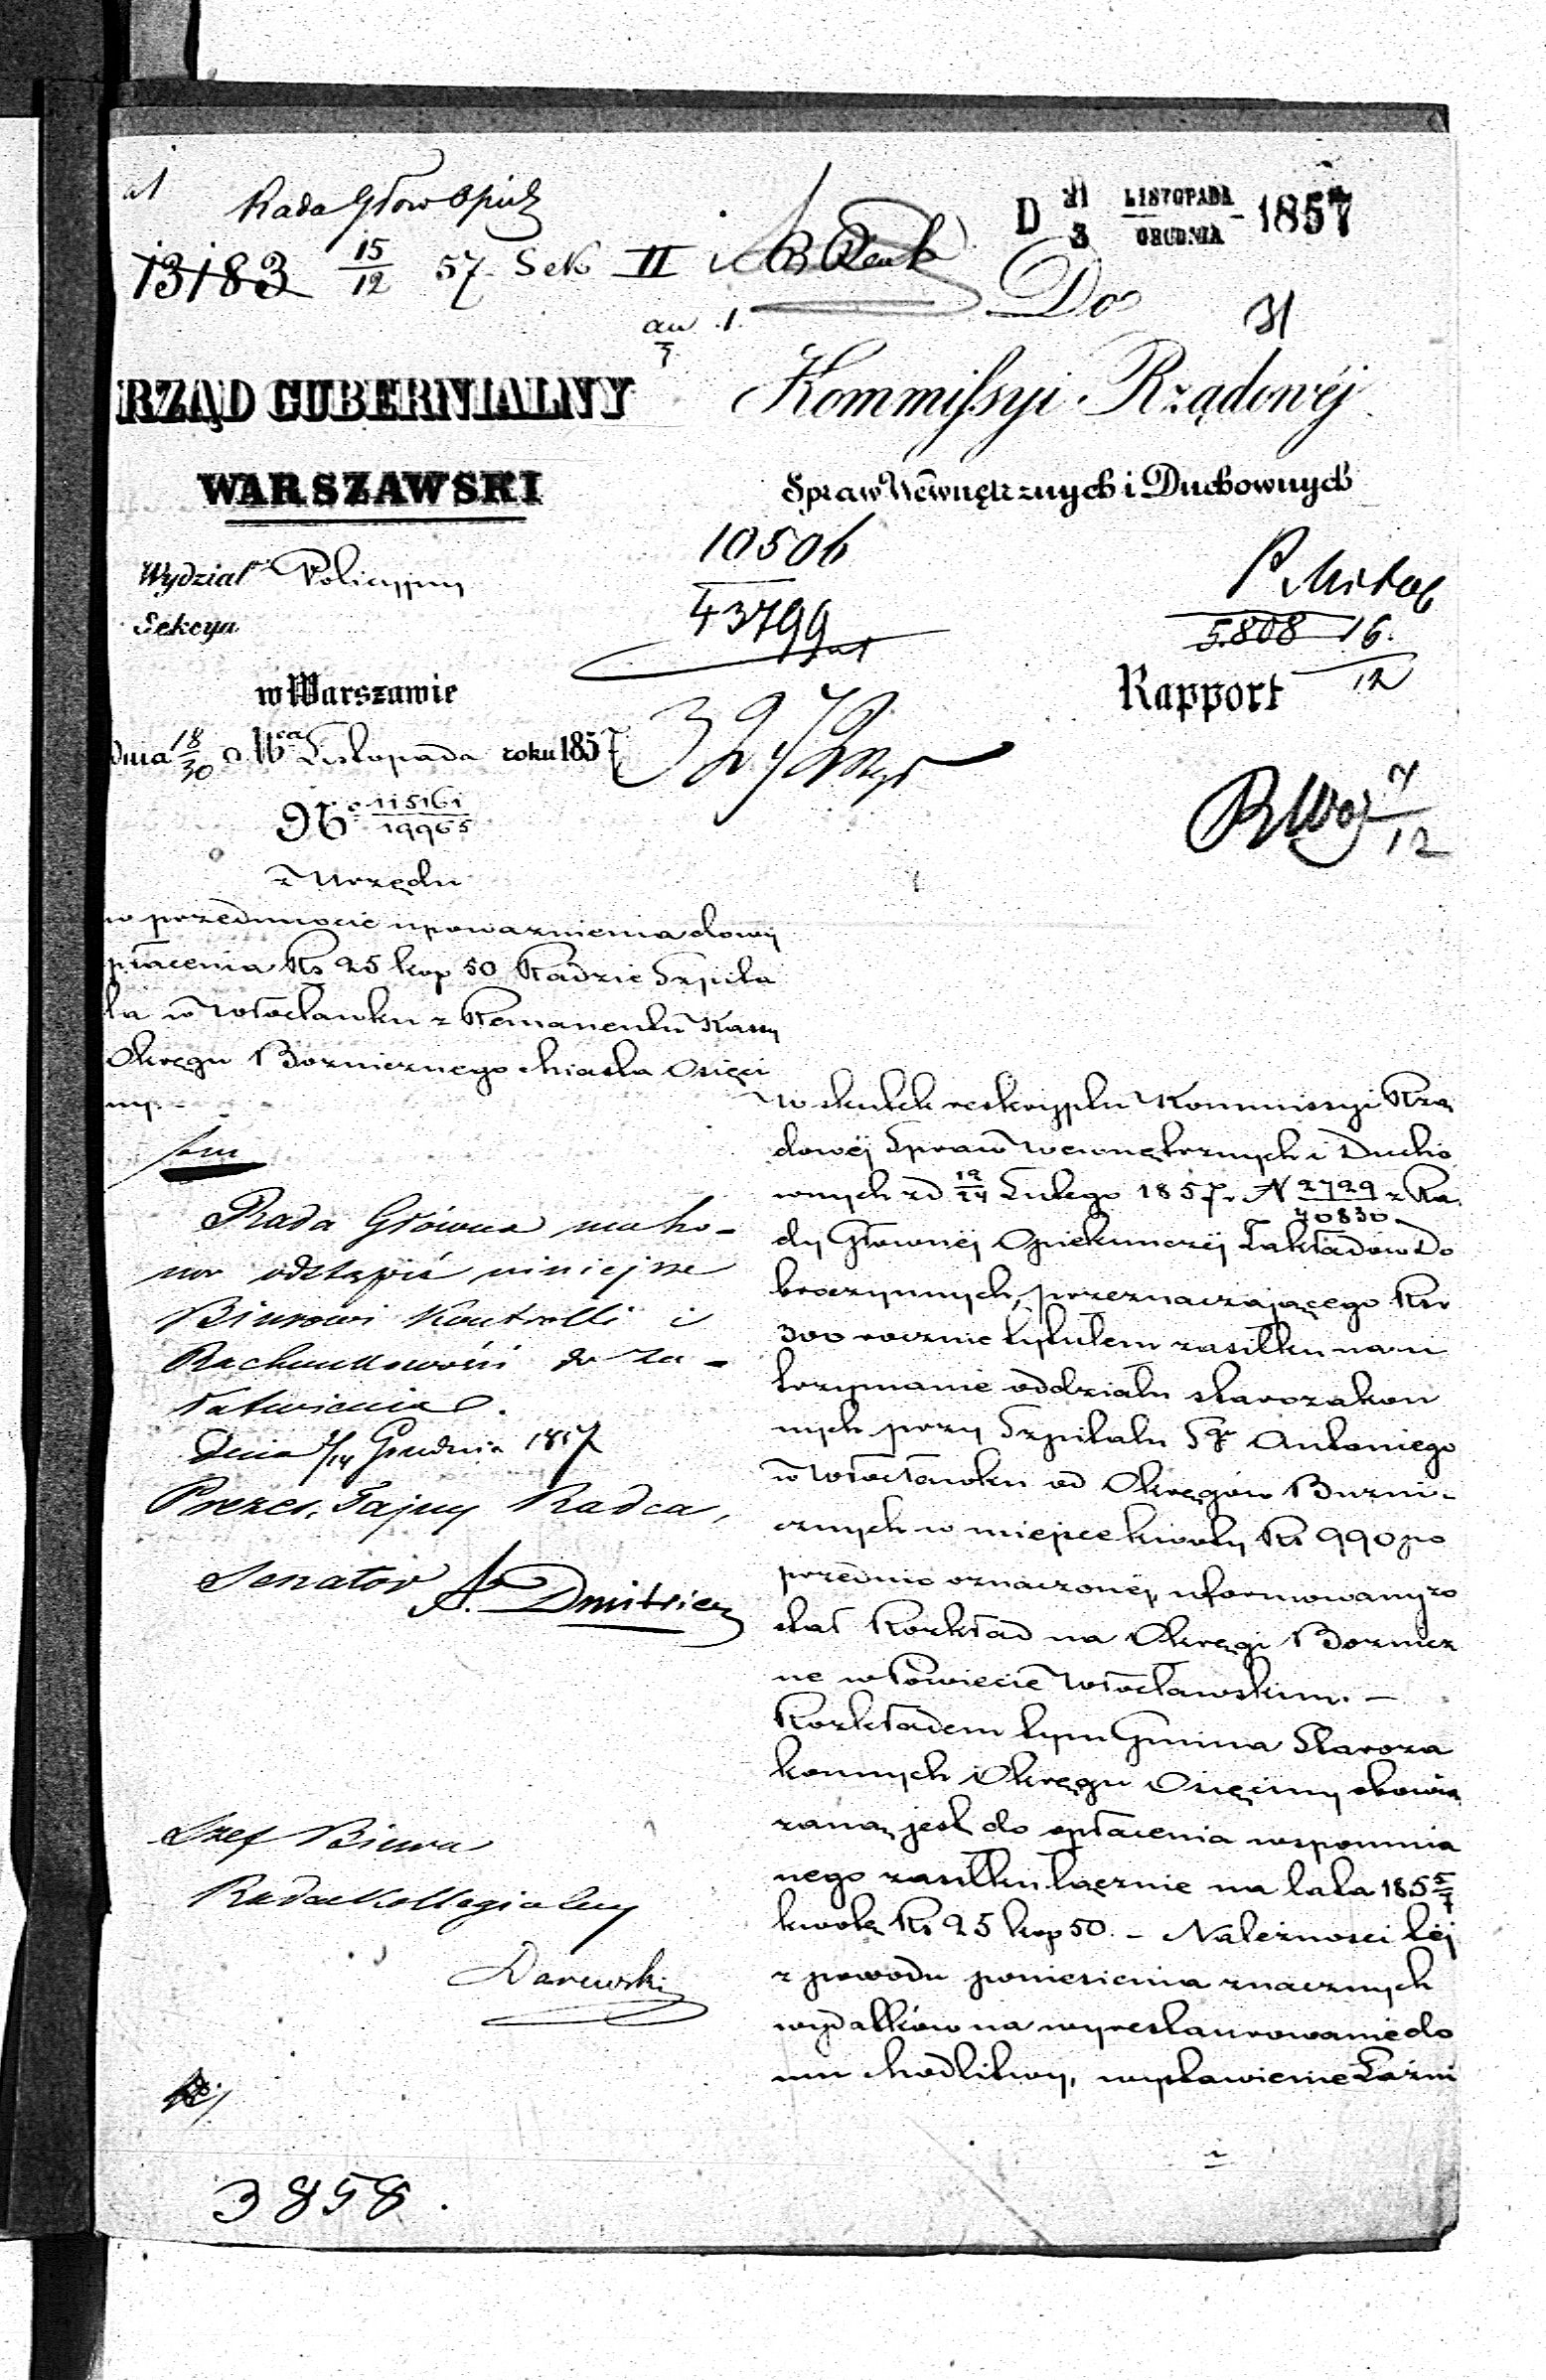 Rada Głów Opiek
13183 15/12 57. Sek II
D 21/3 LISTOPADA/GRUDNIA 1857
Do
31
RZĄD GUBERNIALNY
WARSZAWSKI
Kommissyi Rządowéj
Spraw Wewnętrznych i Duchownych
Wydział Policyjny
Sekcya
10506
43799
5808 16/12
w Warszawie
Rapport
dnia 18/30 Listopada roku 1857
No 115161/19965
z Urzędu
w przedmiocie upoważnienia do wy
płacenia Rs 25 kop 50 Radzie Szpita
la w Włocławku z Remanentu Kassy
Okręgu Bożnicznego Miasta Osięci
ny.
Rada Główna ma ho-
nor odstąpić niniejsze
Biurowi Kontrolli i
Rachunkowości do za-
łatwienia.
Dnia 2/14 Grudnia 1857
Prezes, Tajny Radca,
Senator A. Dmitriew
Szef Biura
Radca Kollegialny
Darewski
3858.
W skutek reskryptu Kommissyi Rzą
dowéj Spraw Wewnętrznych i Ducho
wnych zd 12/24 Lutego 1857 r. N 2729/40830 z Ra
dy Głównéj Opiekunczéj Zakładów Do
broczynnych, przeznaczającego Rsr
300 rocznie tytułem zasiłku na u
trzymanie oddziału starozakon
nych przy Szpitalu Sgo Antoniego
w Włocławku od Okręgów Bożni-
cznych w miejsce kwoty Rs 990 po
przednio oznaczonéj, uformowany zo
stał Rozkład na Okręgi Bożnicz
ne w Powiecie Włocławskim. —
Rozkładem tym Gmina Staroza
konnych Okręgu Osięciny obowią
zaną jest do opłacenia wspomnia
nego zasiłku łącznie na lata 185 5/7
kwotę Rs 25 kop 50. – Należności téj
z powodu poniesienia znacznych
wydatków na wyrestaurowanie do
mu Modlitwy, wystawienie Łaźni